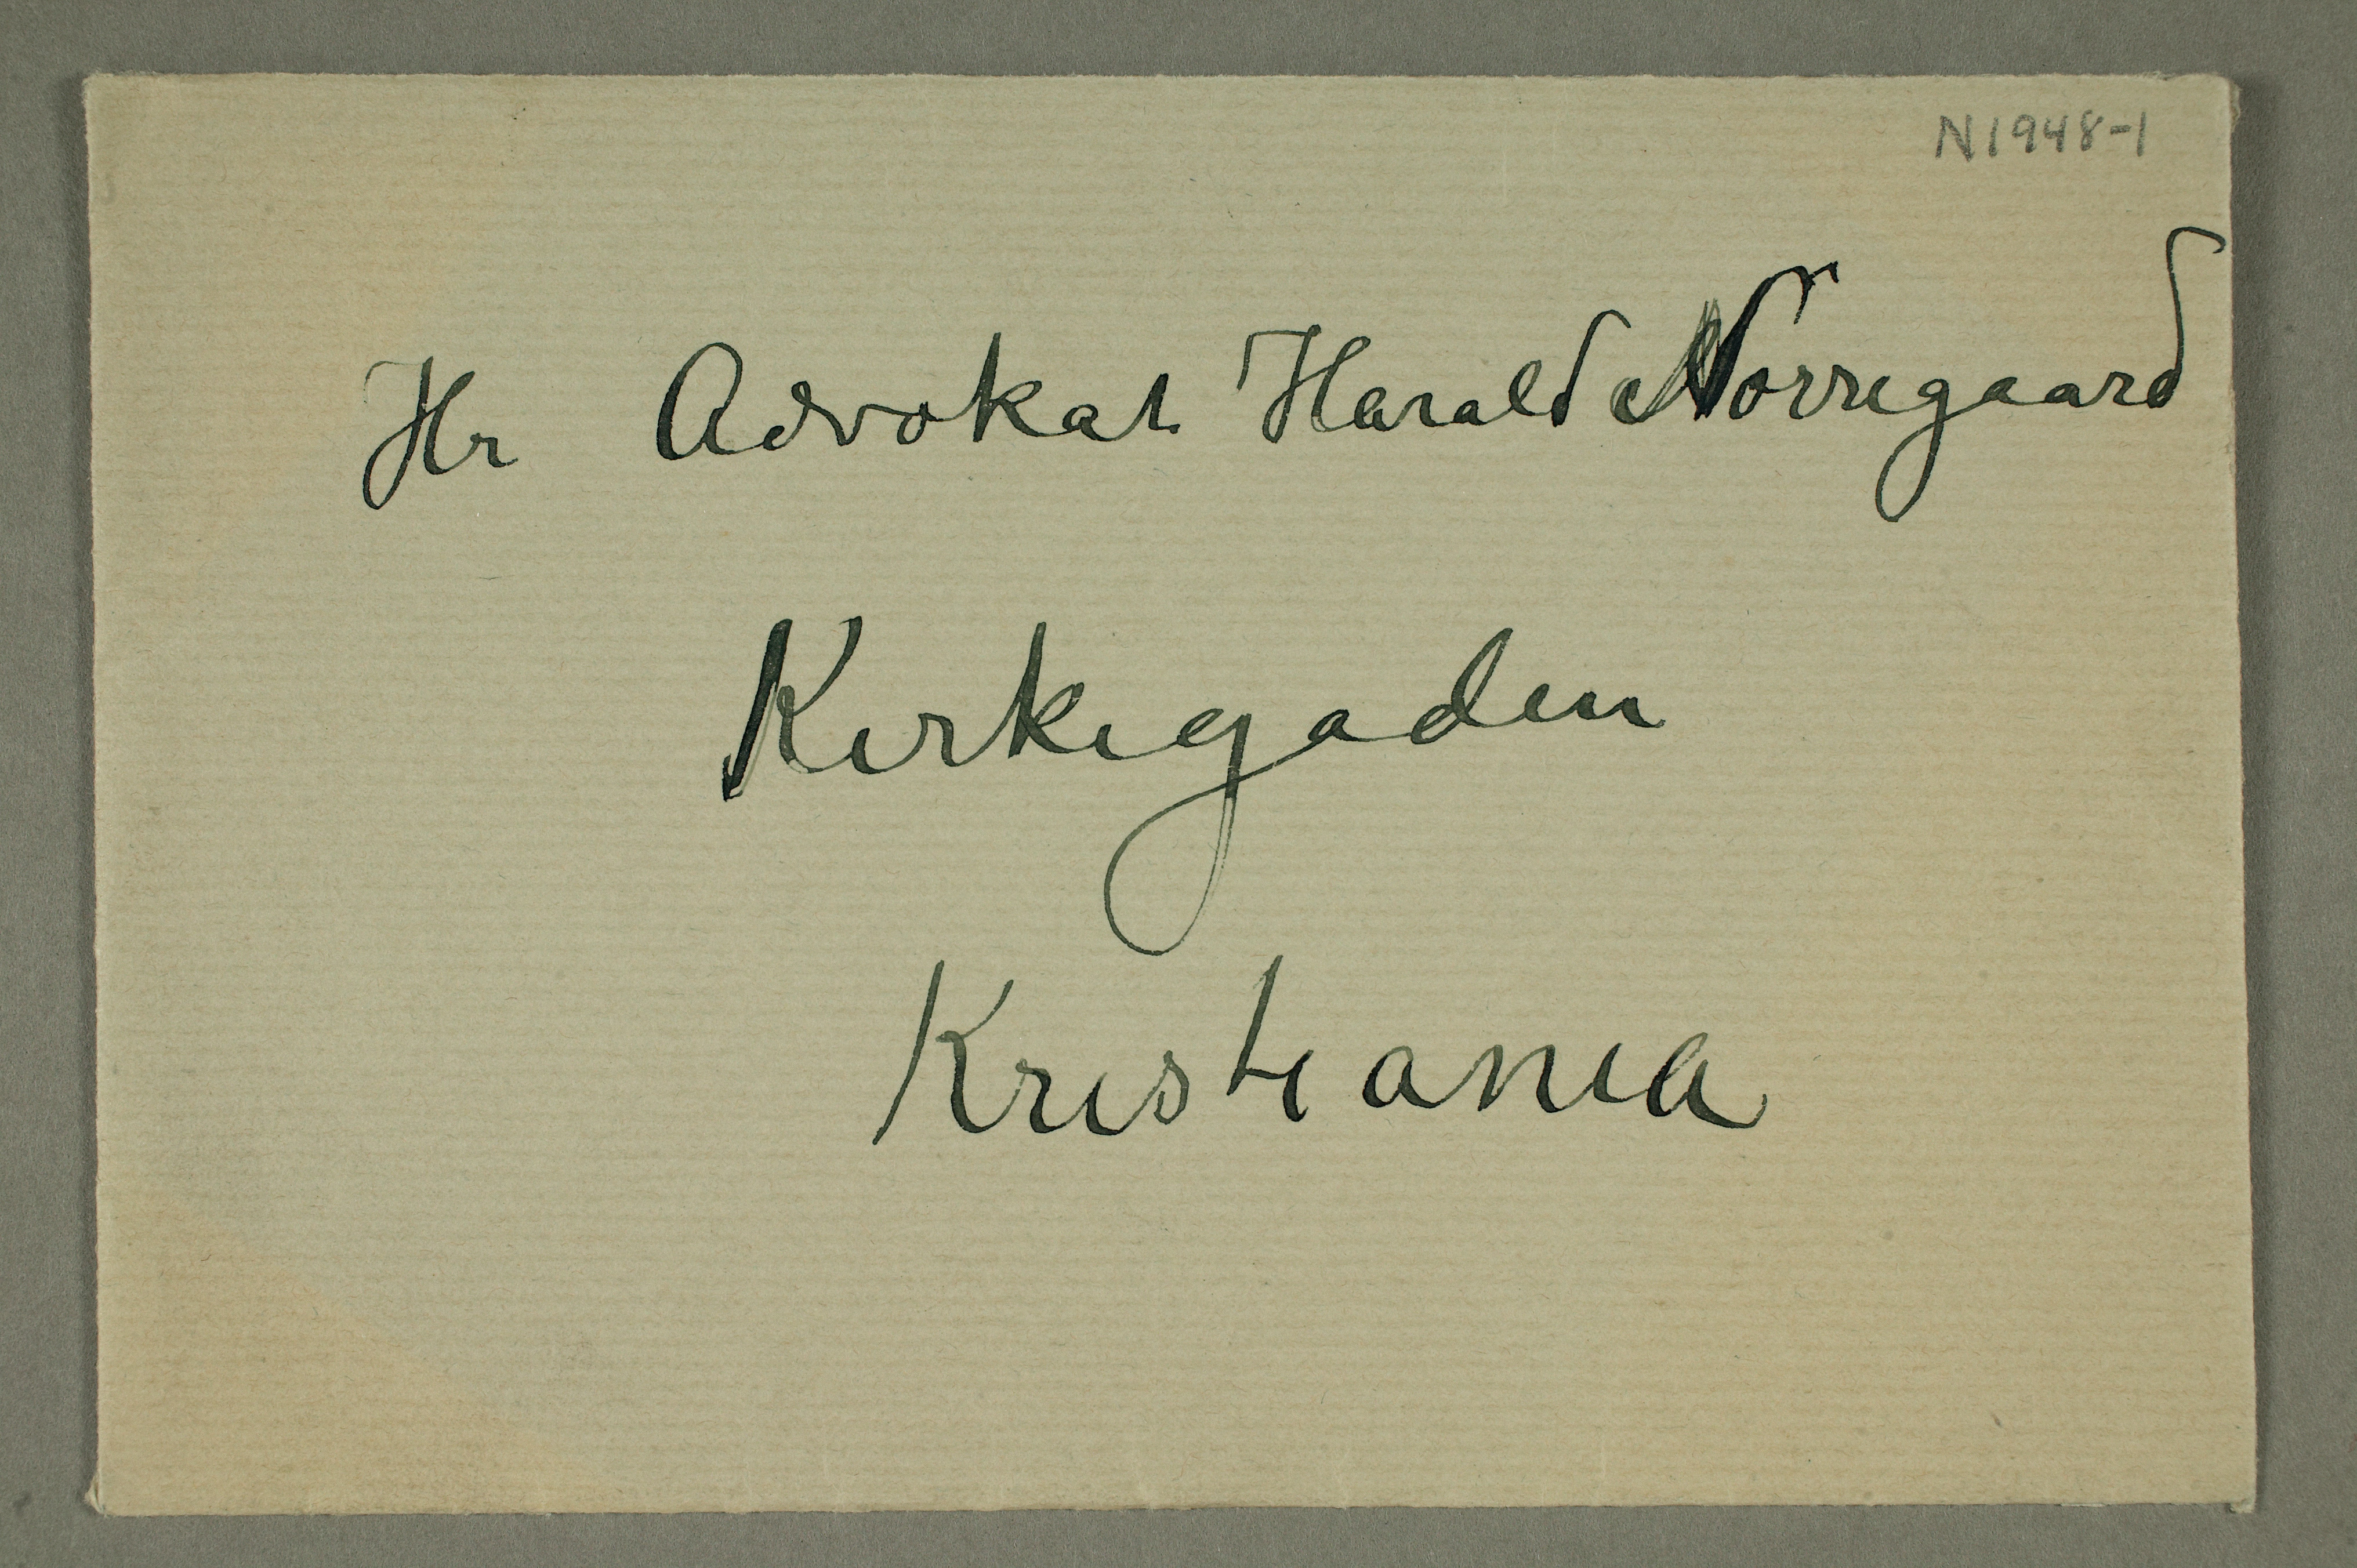 N1948-1
Hr Advokat Harald Norregaard
Kirkegaden
Kristiania